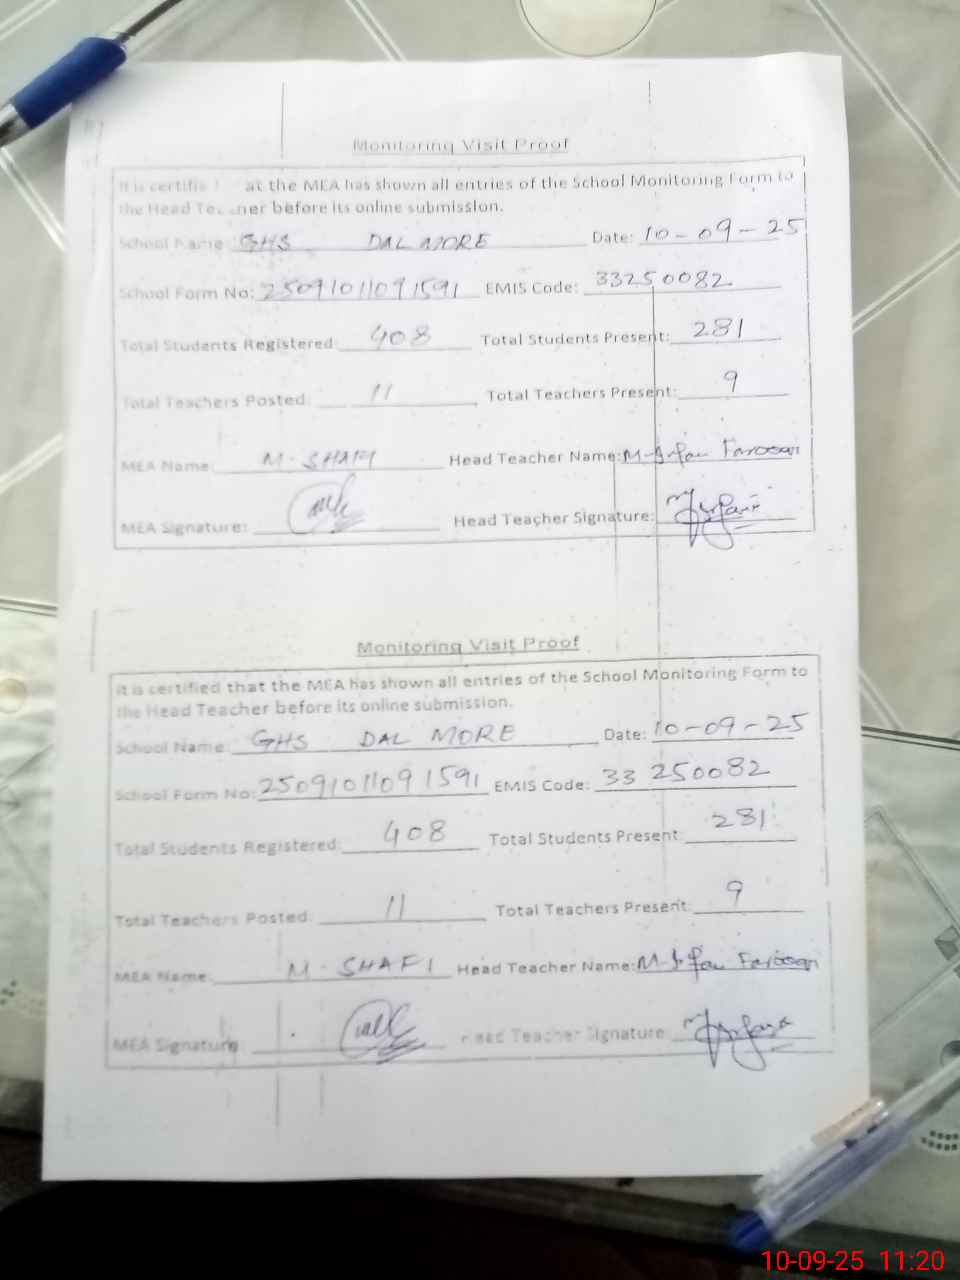 Monitoring Visit Proof
It is certifie at the MEA has shown all entries of the School Monitoring Form to
the Head Teacher before its online submission.
School Name: GHS DAL MORE Date: 10-09-25
School Form No: 25091011091591 EMIS Code: 33250082
Total Students Registered: 408 Total Students Present: 281
Total Teachers Posted: 11 Total Teachers Present: 9
MEA Name: M. SHAFI Head Teacher Name: M. Irfan Farooqi
MEA Signature: Head Teacher Signature:
Monitoring Visit Proof
It is certified that the MEA has shown all entries of the School Monitoring Form to
the Head Teacher before its online submission.
School Name: GHS DAL MORE Date: 10-09-25
School Form No: 25091011091591 EMIS Code: 33 250082
Total Students Registered: 408 Total Students Present: 281
Total Teachers Posted: 11 Total Teachers Present: 9
MEA Name: M. SHAFI Head Teacher Name: M Irfan Farooqi
MEA Signature Head Teacher Signature:
10-09-25 11:20